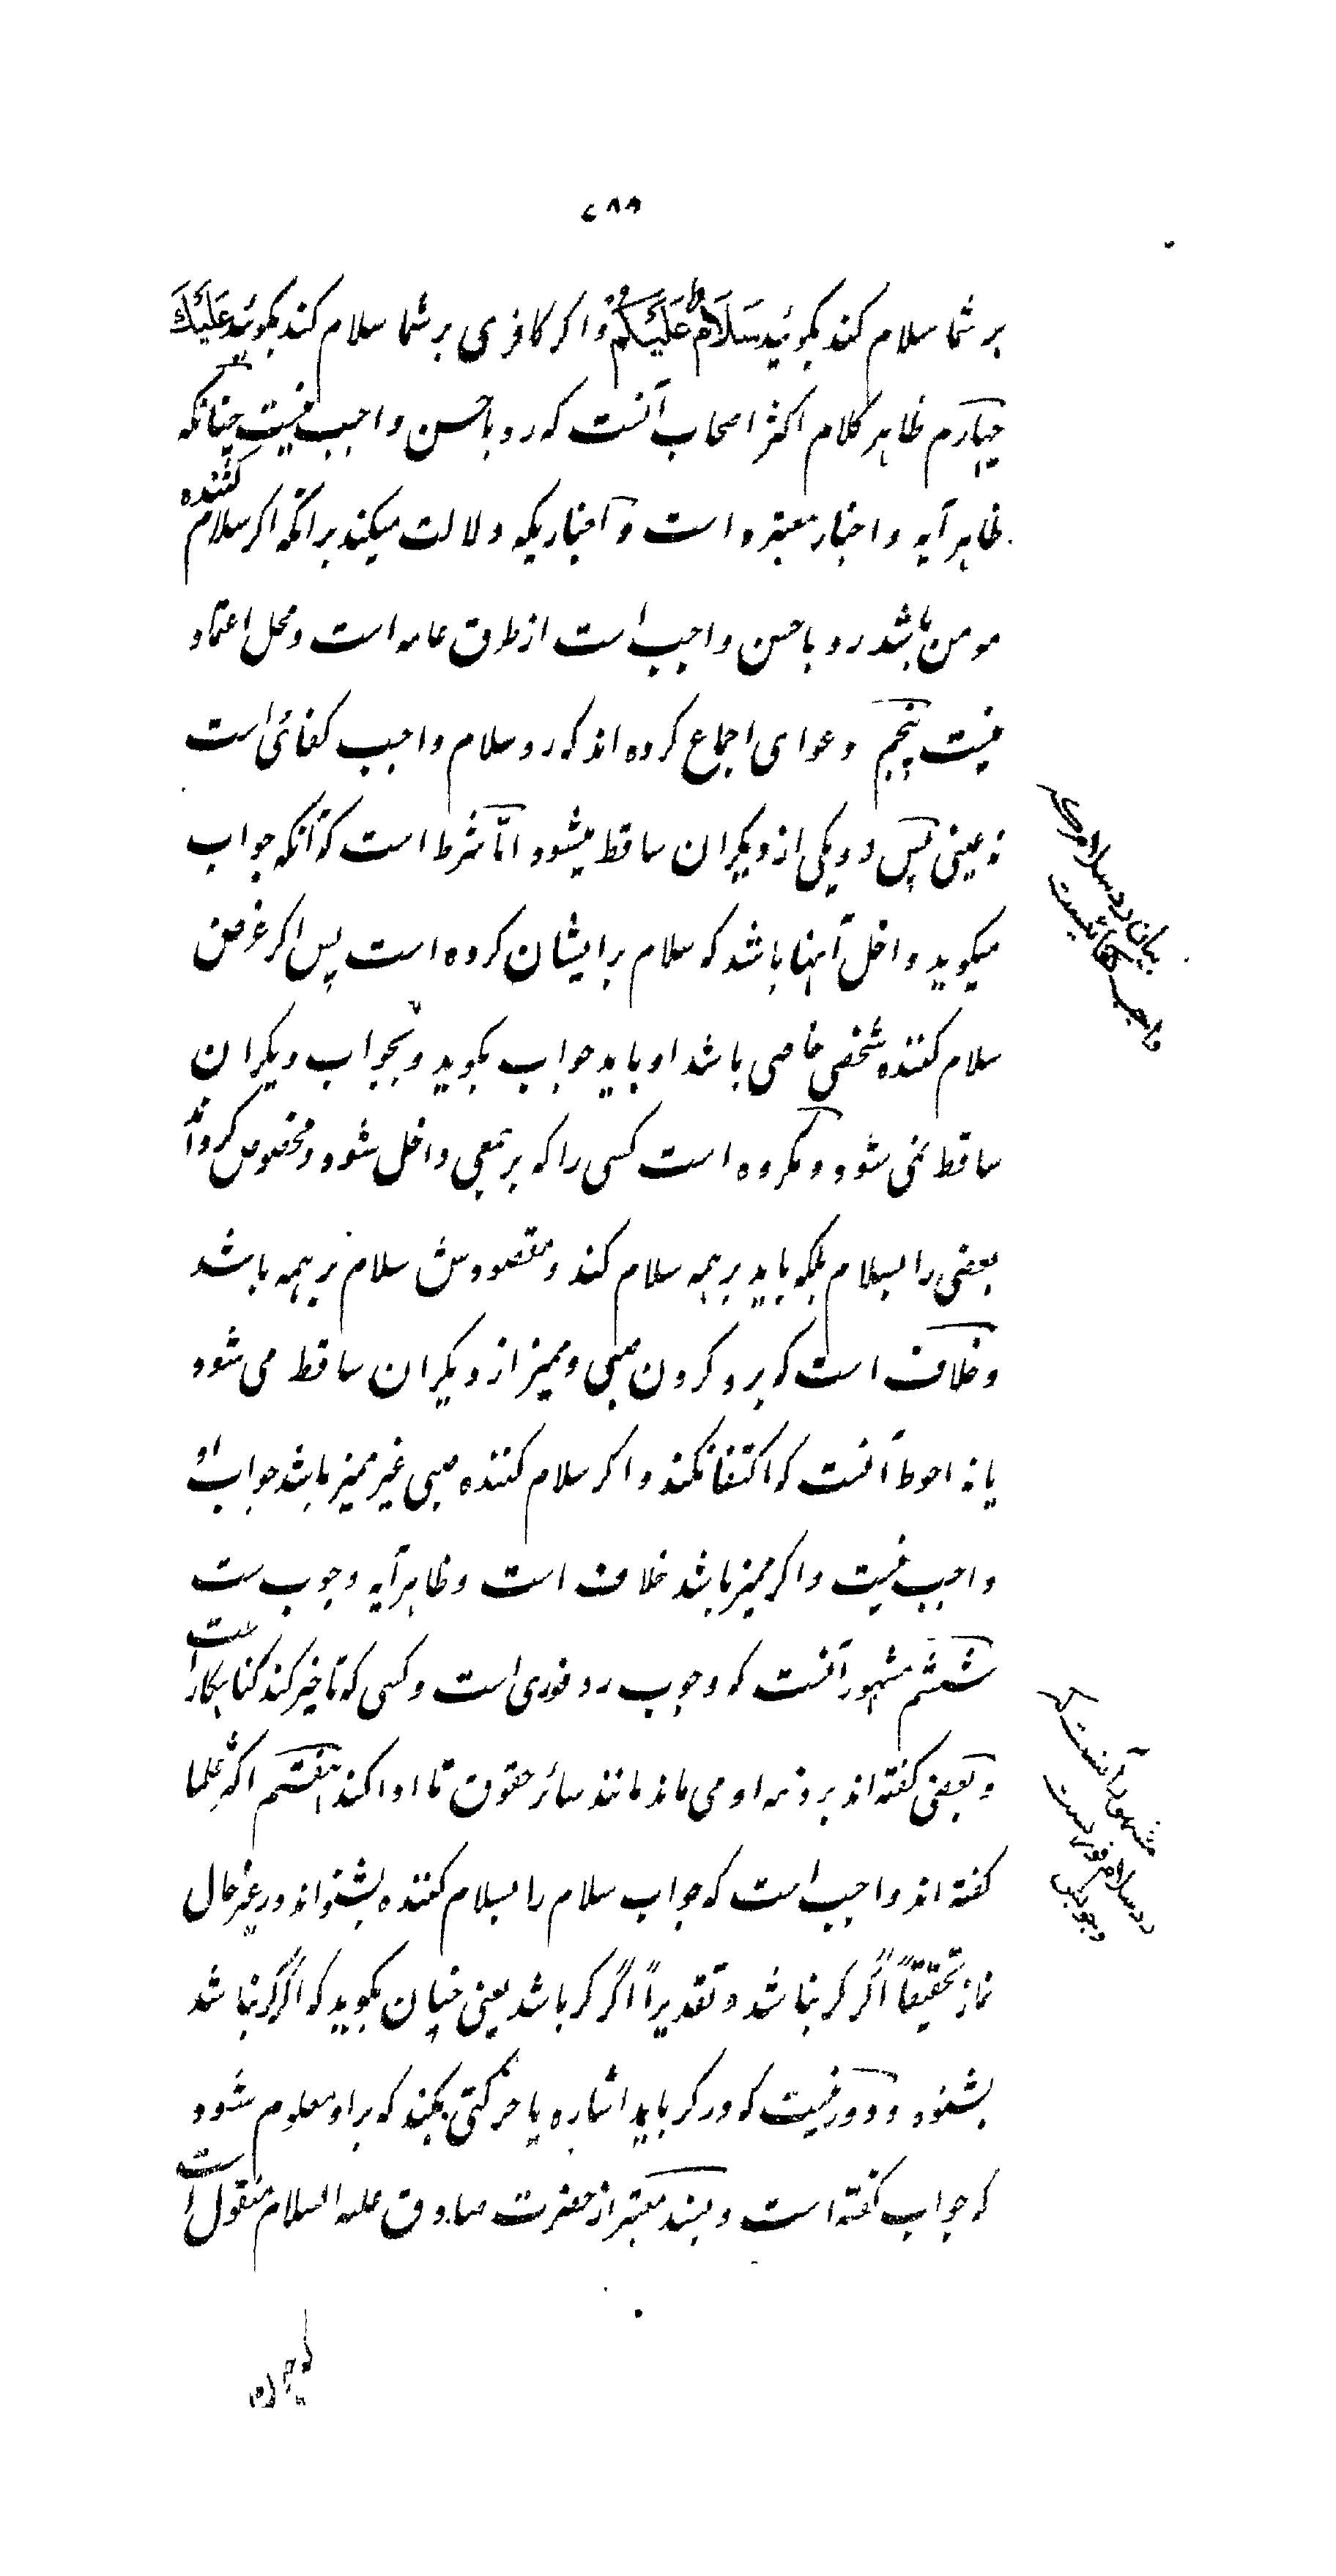 ۲۸۸
بر شما سلام کند بگوئید سَلَامٌ عَلَیْکُمْ و اگر کافری بر شما سلام کند بگوئید عَلَیْكَ
چهارم ظاهر کلام اکثر اصحاب آنست که رد باحسن واجب نیست چنانکه
ظاهر آیه و اخبار معتبره است و اخباریکه دلالت میکند بر آنکه اگر سلام کننده
مومن باشد رد باحسن واجب است از طرق عامه است و محل اعتماد
نیست پنجم دعوای اجماع کرده اند که رد سلام واجب کفائی است
نه عینی پس رد یکی از دیگران ساقط میشود امّا شرط است که آنکه جواب
میگوید داخل آنها باشد که سلام بر ایشان کرده است پس اگر غرض
سلام کننده شخصی خاصی باشد او باید جواب بگوید و بجواب دیگران
ساقط نمی شود و مکروه است کسی را که بر جمعی داخل شود و مخصوص گرداند
بعضی را بسلام بلکه باید بر همه سلام کند و مقصودش سلام بر همه باشد
و خلاف است که برد کردن صبی ممیز از دیگران ساقط می شود
یا نه احوط آنست که اکتفا نکند و اگر سلام کننده صبی غیر ممیز باشد جواب او
واجب نیست و اگر ممیز باشد خلاف است و ظاهر آیه وجوب ست
ششم مشهور آنست که وجوب رد فوری است و کسی که تاخیر کند گناهکار است
و بعضی گفته اند بر ذمه او می ماند مانند سائر حقوق تا ادا کند هفتم اکثر علما
گفته اند واجب است که جواب سلام را بسلام کننده بشنواند در غیر حال
نماز تحقیقاً اگر کر نباشد و تقدیراً اگر کر باشد یعنی چنان بگوید که اگر کر نباشد
بشنود و دور نیست که در کر باید اشاره یا حرکتی بکند که بر او معلوم شود
که جواب گفته است و بسند معتبر از حضرت صادق علیه السلام منقول است
که چون
بیان رد سلام که
واجب کفائیست
مشهور آنست که
رد سلام فوریست
وجوبش